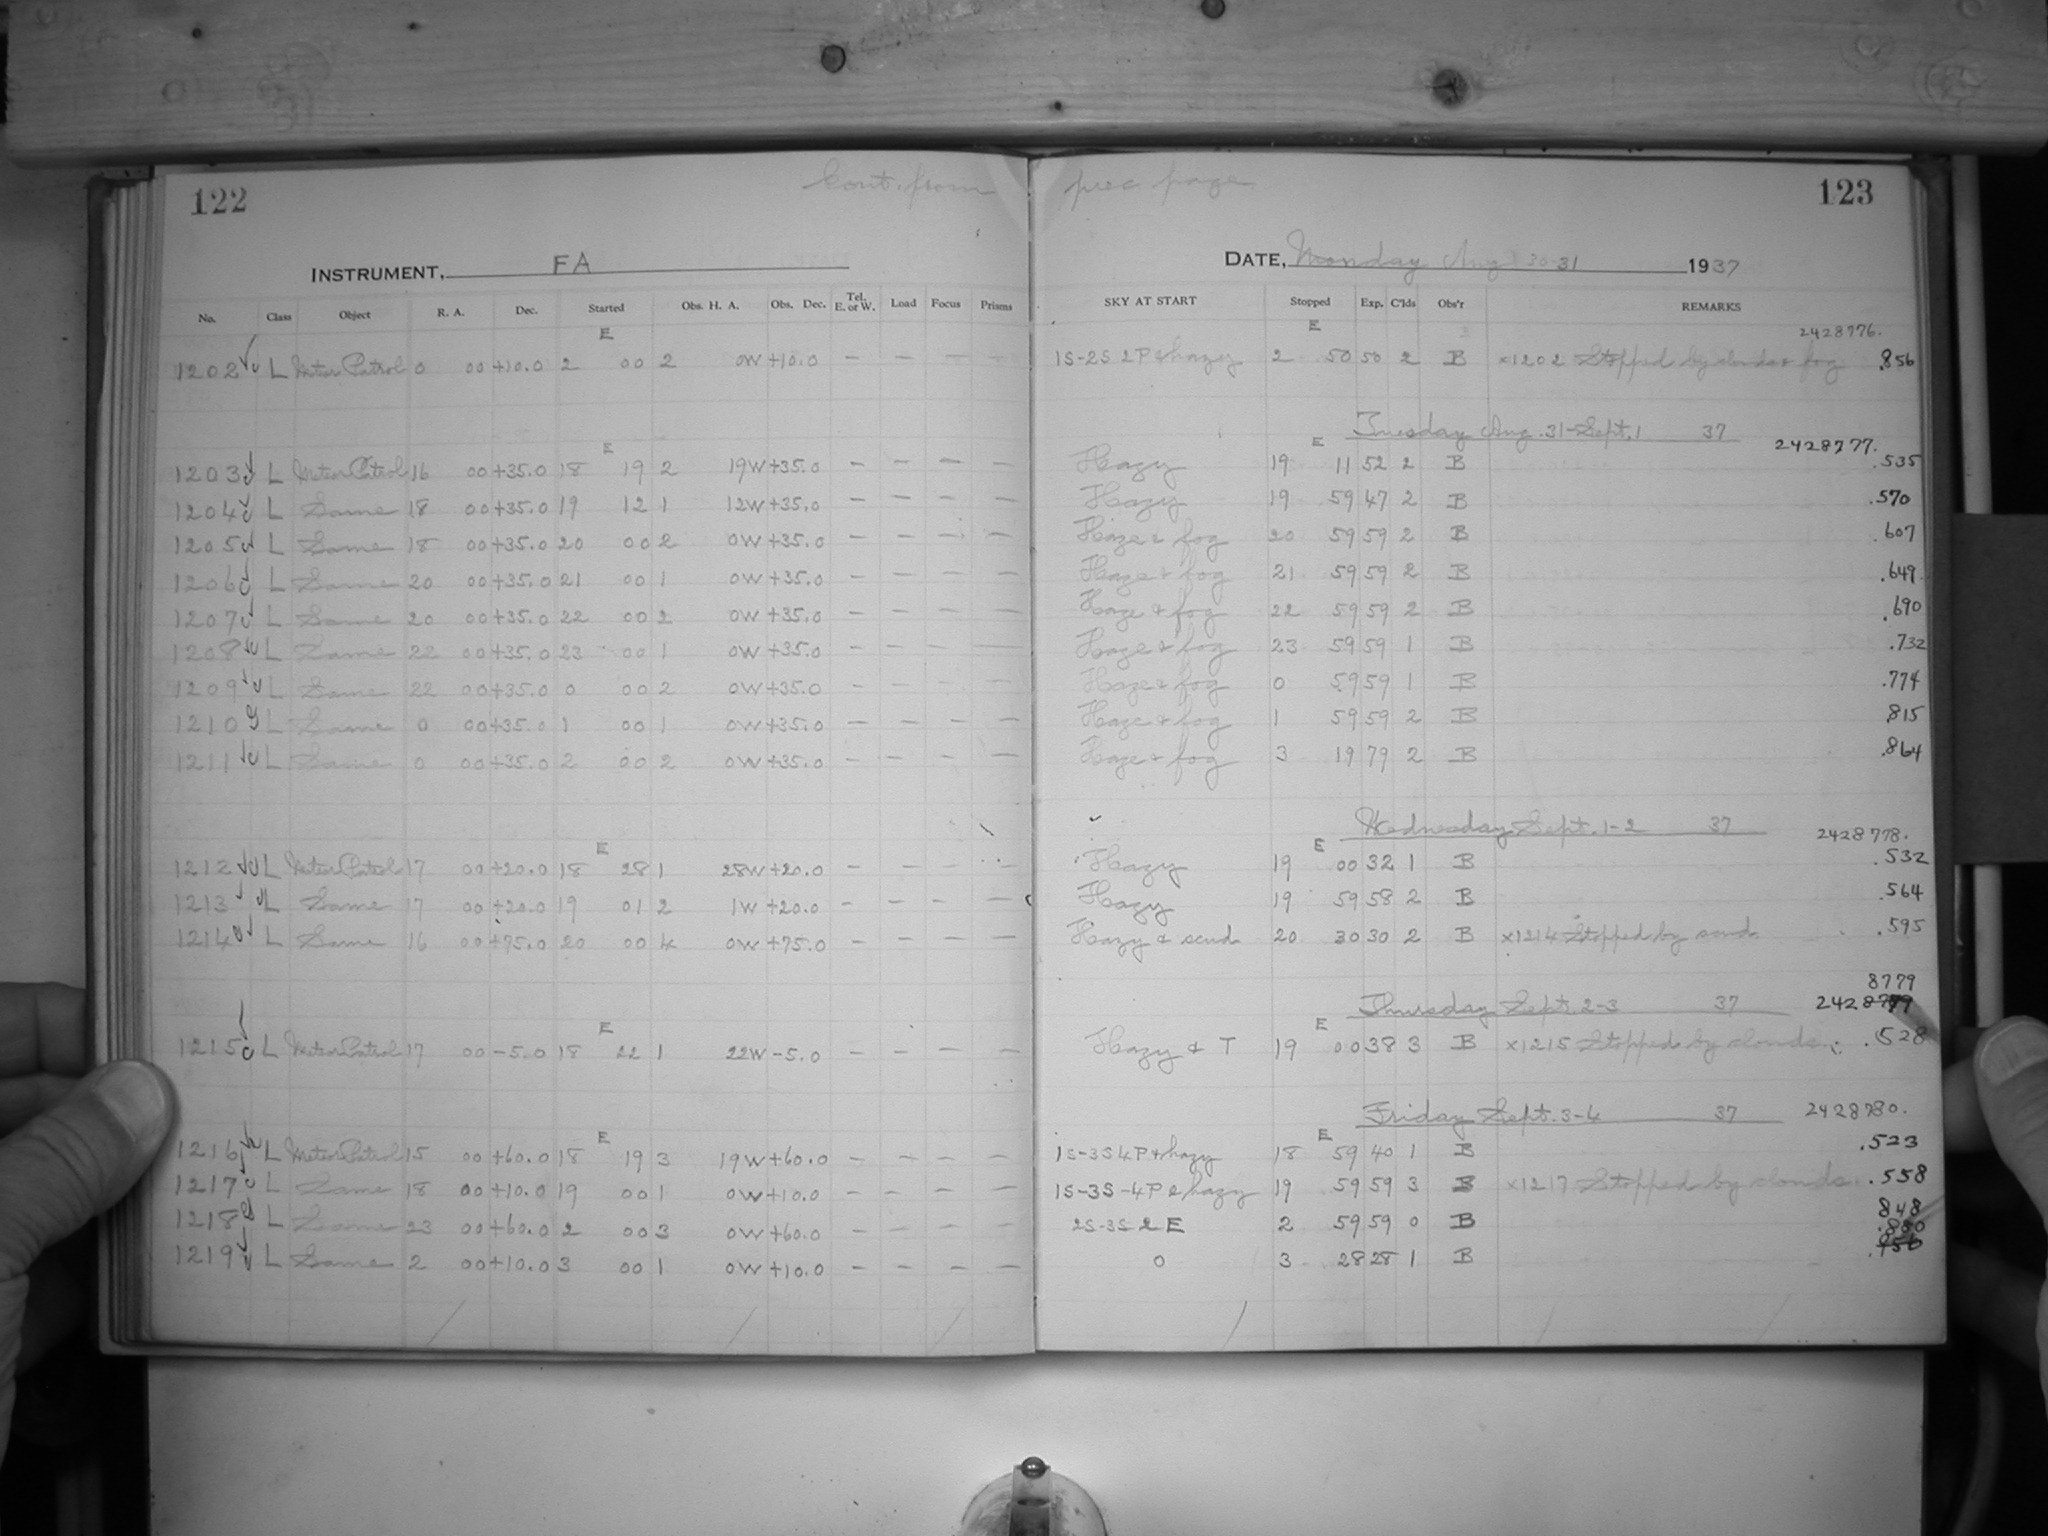 122 Cont. from prec. page 123
INSTRUMENT, FA DATE, Monday Aug 30-31 1937
No. Class Object R. A. Dec. Started Obs. H. A. Obs. Dec. Tel. E. or W. Load Focus Prisms SKY AT START Stopped Exp. C'lds Obs'r REMARKS
E E 2428776.
1202 L Meteor Patrol 0 00 +10.0 2 00 2 0W +10.0 – – – – 1S-2S 2P & hazy 2 50 50 2 B x1202 Stopped by clouds & fog .856
Tuesday Aug. 31-Sept. 1 37
E E 2428777.
1203 L Meteor Patrol 16 00 +35.0 18 19 2 19W +35.0 – – – – Hazy 19 11 52 2 B .535
1204 L Same 18 00 +35.0 19 12 1 12W +35.0 – – – – Hazy 19 59 47 2 B .570
1205 L Same 18 00 +35.0 20 00 2 0W +35.0 – – – – Haze & fog 20 59 59 2 B .607
1206 L Same 20 00 +35.0 21 00 1 0W +35.0 – – – – Haze & fog 21 59 59 2 B .649
1207 L Same 20 00 +35.0 22 00 2 0W +35.0 – – – – Haze & fog 22 59 59 2 B .690
1208 L Same 22 00 +35.0 23 00 1 0W +35.0 – – – – Haze & fog 23 59 59 1 B .732
1209 L Same 22 00 +35.0 0 00 2 0W +35.0 – – – – Haze & fog 0 59 59 1 B .774
1210 L Same 0 00 +35.0 1 00 1 0W +35.0 – – – – Haze & fog 1 59 59 2 B .815
1211 L Same 0 00 +35.0 2 00 2 0W +35.0 – – – – Haze & fog 3 19 79 2 B .864
Wednesday Sept. 1-2 37
E E 2428778.
1212 L Meteor Patrol 17 00 +20.0 18 28 1 28W +20.0 – – – – Hazy 19 00 32 1 B .532
1213 L Same 17 00 +20.0 19 01 2 1W +20.0 – – – – Hazy 19 59 58 2 B .564
1214 L Same 16 00 +75.0 20 00 4 0W +75.0 – – – – Hazy & scud 20 30 30 2 B x1214 Stopped by scud. .595
8779
Thursday Sept. 2-3 37
E E
1215 L Meteor Patrol 17 00 -5.0 18 22 1 22W -5.0 – – – – Hazy & T 19 00 38 3 B x1215 Stopped by clouds. .528
Friday Sept. 3-4 37 2428780.
E E
1216 L Meteor Patrol 15 00 +60.0 18 19 3 19W +60.0 – – – – 1S-3S 4P & hazy 18 59 40 1 B .523
1217 L Same 18 00 +10.0 19 00 1 0W +10.0 – – – – 1S-3S-4P & hazy 19 59 59 3 B x1217 Stopped by clouds. .558
1218 L Same 23 00 +60.0 2 00 3 0W +60.0 – – – – 2S-3S 2 E 2 59 59 0 B 848
1219 L Same 2 00 +10.0 3 00 1 0W +10.0 – – – – 0 3 28 28 1 B